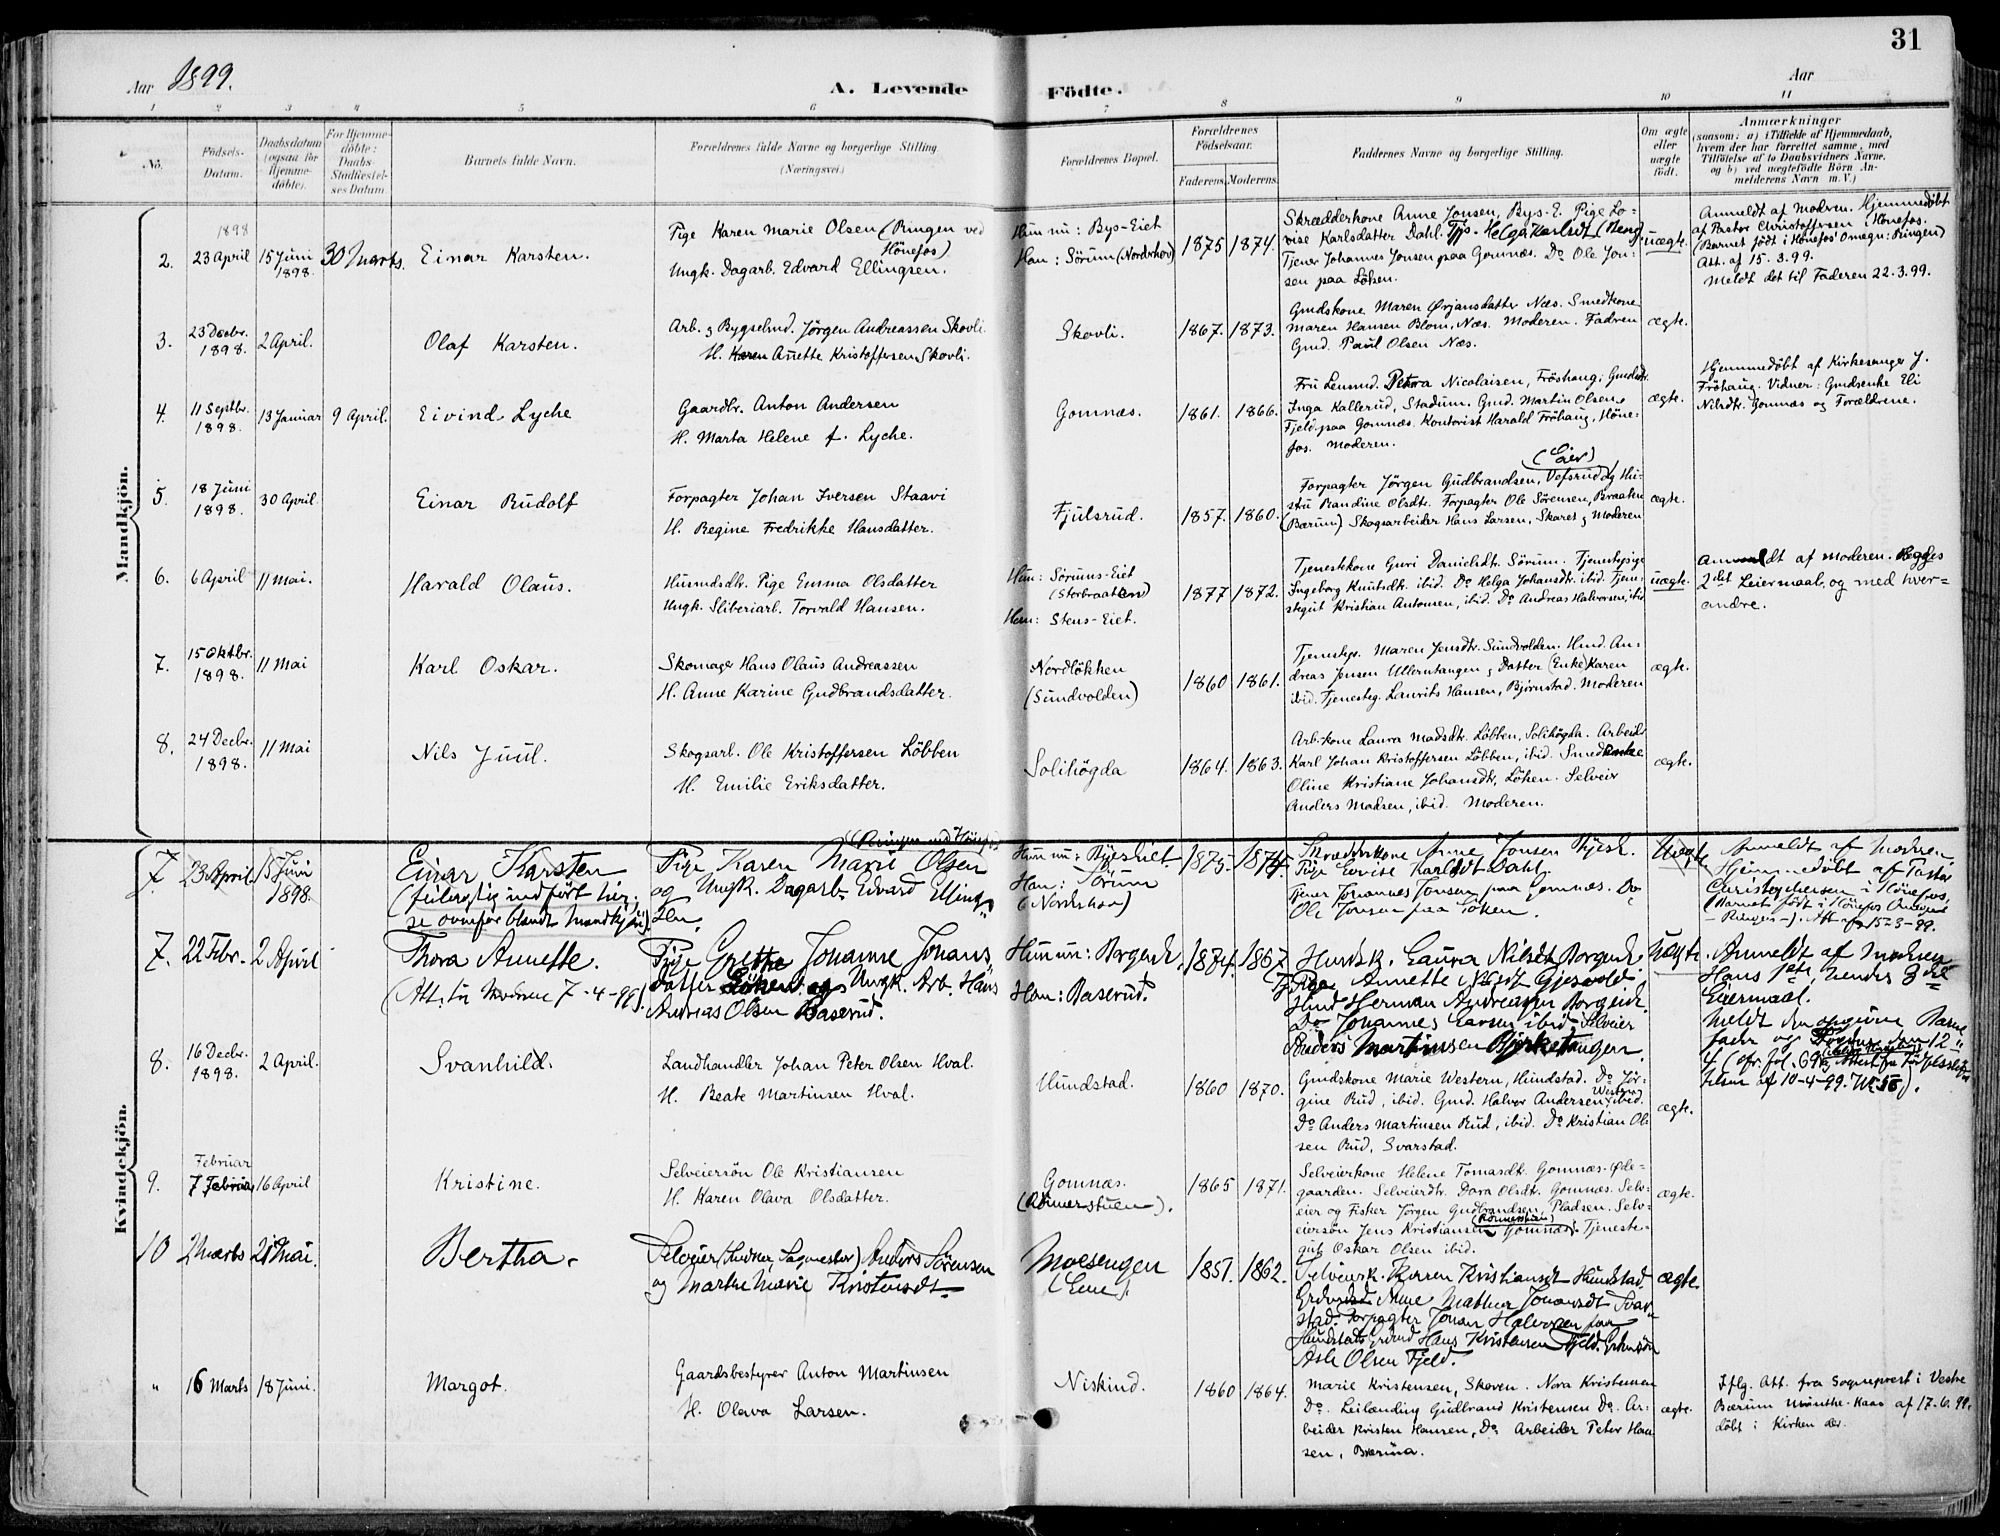 31
Aar 1899.
A. Levende
Födte.
Aar
1 2 3 4 5 6 7 8 9 10 11
Nò.
Födsels-
Datum.
Daabsdatum
(ogsaa for
Hjemme-
döbte).
For Hjemme-
döbte:
Daabs-
Stadfæstel-
ses Datum
Barnets fulde Navn.
Forældrenes fulde Navne og borgerlige Stilling
(Næringsvei.)
Forældrenes Bopæl.
Forældrenes
Födselsaar.
Faderens. Moderens.
Faddernes Navne og borgerlige Stilling.
Om ægte
eller
uægte
födt.
Anmærkninger
(saasom: a) i Tilfælde af Hjemmedaab,
hvem der har forrettet samme, med
Tilföielse af to Daabsvidners Navne,
og b) ved uægtefödte Börn An-
melderens Navn m. V.)
Mandkjön.
2.
1898
23 April
15 Juni
1898.
30 Marts.
Einar Karsten.
Pige Karen Marie Olsen (Ringen ved
Hönefos)
Ungk. Dagarb. Edvard Ellingsen.
Hun nu: Bys-Eiet
Han: Sørum (Norderhov)
1875 1874.
Skrædderkone Anne Jonsen, Bys-E. Pige Lo-
vise Karlsdatter Dahl.
Tjener Johannes Jonsen paa Gomnæs. Do Ole Jon-
sen paa Löken.
uægte.
Anmeldt af Modren. Hjemmedöbt
af Pastor Christoffersen i Hönefos.
(Barnet födt i Hönefos' Omegn: Ringen)
Att. af 15. 3. 99.
Meldt det til Faderen 22.3.99.
3.
23 Decbr.
1898.
2 April.
Olaf Karsten.
Arb. & Bygselmd. Jörgen Andreassen Skovli.
H. Karen Anette Kristoffersen Skovli.
Skovli.
1867. 1873.
Gmdskone Maren Ørjansdatter Næs. Smedkone
Maren Hansen Blom, Næs. Moderen. Fadren
Gmd. Paul Olsen Næs.
ægte.
4.
11 Septbr.
1898.
13 Januar
9 April.
Eivind Lyche
Gaardbr. Anton Andersen
H. Marta Helene f. Lyche.
Gomnæs.
1861. 1866.
Fru Lensmd. Petra Nicolaisen, Fröshaug; Gmdsdtr.
Inga Kallerud, Stadum. Gmd. Martin Olsen
Fjeld paa Gomnæs. Kontorist Harald Fröhaug, Höne-
fos. Moderen.
ægte.
Hjemmedöbt af Kirkesanger J.
Fröhaug. Vidner: Gmdsenke Eli
Nilsdtr. Gomnæs og Forældrene.
5.
18 Juni
1898.
30 April.
Einar Rudolf
Forpagter Johan Iversen Staavi
H. Regine Fredrikke Hansdatter.
Fjulsrud.
1857. 1860.
(Eier)
Forpagter Jörgen Gudbrandsen, Vofsrud og Hu-
stru Randine Olsdt. Forpagter Ole Sörensen, Braaten
(Bærum) Skogsarbeider Hans Larsen, Skaret & Moderen
ægte.
6.
6 April
11 Mai.
Harald Olaus.
Husmdsdtr. Pige Emma Olsdatter
Ungk. Sliberiarb. Torvald Hansen.
Hun: Sørums-Eiet
(Storbraatem)
Han: Stens-Eiet.
1877 1872.
Tjenestekone Guri Danieldt. Sörum. Tjenestepige
Ingeborg Knutsdt. ibid. Do Helga Johansdt. ibid. Tjene-
stegut Kristian Antonsen, ibid. Do Andreas Halvorsen, ibid
uægte.
Anmeldt af Moderen. Begges
2det Leiermaal, og med hver-
andre.
7.
15 Oktbr.
1898.
11 Mai
Karl Oskar.
Skomager Hans Olaus Andreassen
H. Anne Karine Gudbrandsdatter.
Nordlökken
(Sundvolden)
1860 1861.
Tjenestepi. Maren Jensdtr. Sundvolden. Hmd. An-
dreas Jensen Ullerntangen & Datter (Enke) Karen
ibid. Tjenesteg. Laurits Hansen, Bjørnstad. Moderen
ægte.
8.
24 Decbr.
1898.
11 Mai
Nils Juul.
Skogsarb. Ole Kristoffersen Löbben
H. Emilie Eriksdatter.
Solihögda
1864. 1863.
Arb-kone Laura Madsdt. Löbben, Solihögda. Arbeider
Karl Johan Kristoffersen Löbben, ibid. Smedenke
Oline Kristiane Johansdtr., Löken. Selveier
Anders Madsen, ibid. Moderen.
ægte.
Kvindekjön.
7.
23 April
15 Juni
1898.
Einar Karsten
(feilagtig indført her,
se ovenfor blandt Mandkjön).
(Ringen ved Hönefos)
Pige Karen Marie Olsen
og Ungk. Dagarb. Edvard Elling-
sen.
Hun nu: Byeseiet
Han: Sörum
(Norderhov)
1875. 1874.
Skrædderkone Anne Jonsen Byesei.
Pige Lovise Karlsdt Dahl.
Tjener Johannes Jonsen paa Gomnæs. Do
Ole Jonsen paa Löken.
Uægte
Anmeldt af Modren.
Hjemmedöbt af Pastor
Christophersen i Hönefos,
(Barnet födt i Hönefos Omegn
- Ringen -). Att. af 15-3-99.
7.
22 Febr.
2 April
Thora Annette.
(Att. til Modren 7-4-99).
Pige Grethe Johanne Johans-
datter Löken og Ungk. Arb. Hans
Andreas Olsen Baserud.
Hun nu: Borgeneie.
Han: Baserud.
1874. 1867.
Husdsk. Laura Nilsdt Borgenei.
Pige Annette Gjesvold.
Husmd Herman Andreasen Borgeneie.
Do Johannes Larsen ibid. Selveier
Anders Martinsen Bjerketangen.
Uægte.
Anmeldt af Modren
Hans 1ste, hendes 3die
Leiermaal.
Meldt den opgivne Barne-
fader
8.
16 Decbr.
1898.
2 April.
Svanhild.
Landhandler Johan Peter Olsen Hval.
H. Beate Martinsen Hval.
Hundstad.
1860 1870.
Gmdskone Marie Western, Hundstad. Do Jör-
gine Rud, ibid. Gmd. Halvor Andersen Western, ibid.
Do Anders Martinsen Rud, ibid. Do Kristian Ol-
sen Rud, Svarstad.
ægte.
9.
Februar
7 Februar
16 April
Kristine.
Selveiersön Ole Kristiansen
H. Karen Olava Olsdatter.
Gomnæs.
(Rönnerstuen).
1865 1871.
Selveierkone Helene Tomasdt. Gomnæs-Øde-
gaarden. Selveierdtr. Dora Olsdt. Gomnæs. Selv-
eier og Fisker Jörgen Gudbrandsen, Pladsen. Selv-
eiersön Jens Kristiansen (Rönnerstuen) Gomnæs. Tjeneste-
gut Oskar Olsen ibid.
ægte.
10
2 Marts
21 Mai.
Bertha.
Selveier (Husker, Sagmester) Anders Sörensen
og Marthe Marie Kristensdt.
Moesengen
(Lene).
1851. 1862.
Selveierk. Karen Kristiansdt Hundstad
Mathea Johansdt Svar-
stad. Forpagter Johan Halvorsen paa
Hundstad. Hans Kristensen Fjeld.
Asle Olsen Fjeld.
ægte.
"
16 Marts
18 Juni.
Margot.
Gaardsbestyrer Anton Martinsen
H. Olava Larsen.
Niskind.
1860 1864.
Marie Kristensen, Skoven. Nora Kristensen
Do. Leilænding Gudbrand Kristensen Do. Ar-
beider Kristen Hansen, Do. Arbeider Peter Han-
sen, Bærum.
ægte.
Iflg. Att. fra Sogneprest i Vestre
Bærum Münthe-Kaas af 17.6.99.
döbt i Kirken der.